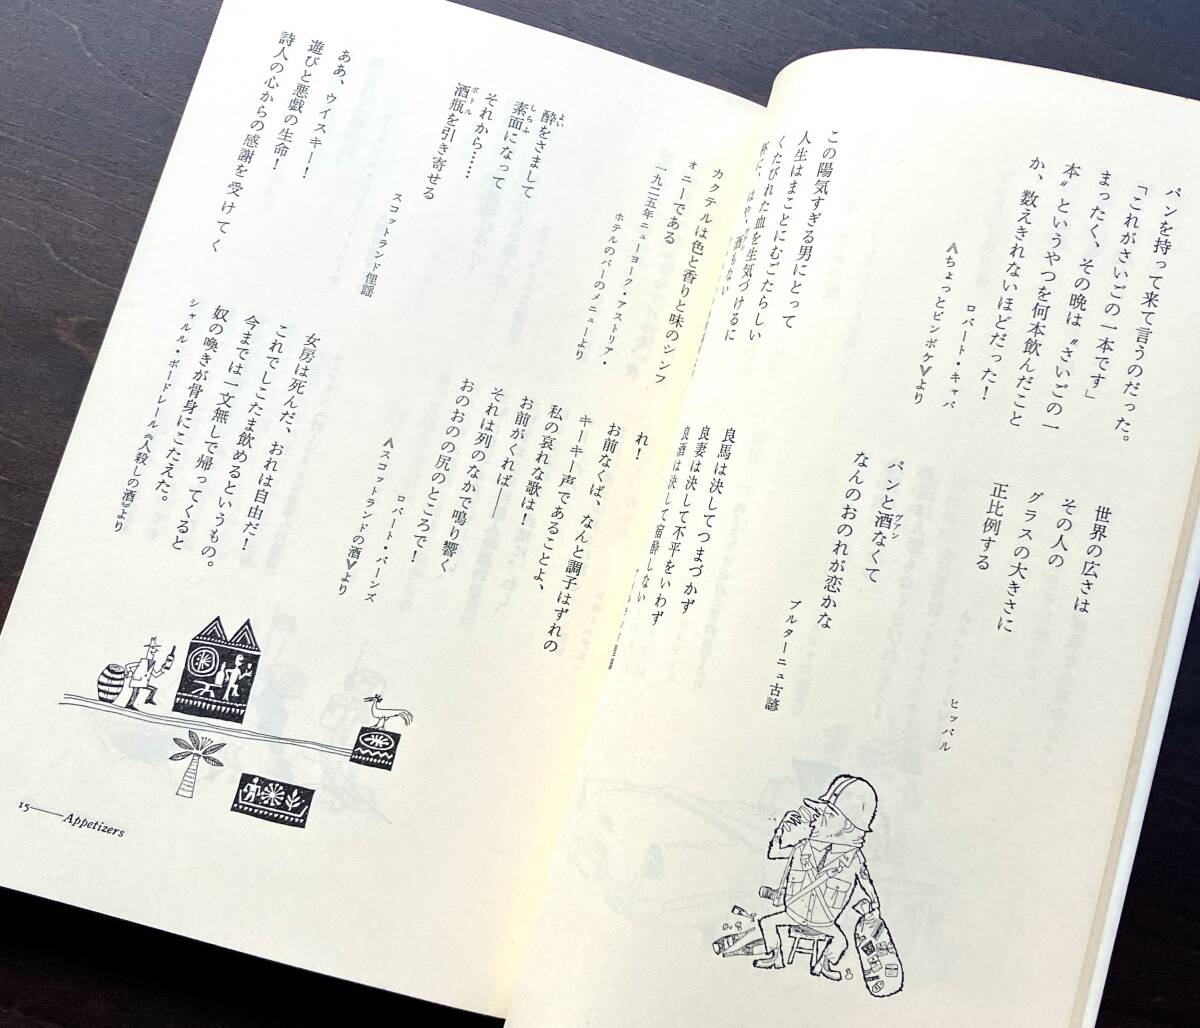 パンを持って来て言うのだった。
「これがさいごの一本です」
まったく、その晩は〝さいごの一
本〟というやつを何本飲んだこと
か、数えきれないほどだった！
ロバート・キャパ
《ちょっとピンボケ》より
この陽気すぎる男にとって
人生はまことにむごたらしい
くたびれた血を生気づけるに
はや、酒もない
世界の広さは
その人の
グラスの大きさに
正比例する
ヒッパル
パンと酒なくて
ヴァン
なんのおのれが恋かな
ブルターニュ古諺
良馬は決してつまづかず
良妻は決して不平をいわず
良酒は決して宿酔しない
カクテルは色と香りと味のシンフ
ォニーである
一九三五年ニューヨーク・アストリア・
ホテルのバーのメニューより
酔をさまして
よい
素面になって
しらふ
それから……
酒瓶を引き寄せる
ボトル
スコットランド俚謡
ああ、ウイスキー！
遊びと悪戯の生命！
詩人の心からの感謝を受けてく
れ！
お前なくば、なんと調子はずれの
キーキー声であることよ、
私の哀れな歌は！
お前がくれば——
それは列のなかで鳴り響く
おのおのの尻のところで！
ロバート・バーンズ
《スコットランドの酒》より
女房は死んだ、おれは自由だ！
これでしこたま飲めるというもの。
今までは一文無しで帰ってくると
奴の喚きが骨身にこたえた。
シャルル・ボードレール《人殺しの酒》より
15——Appetizers